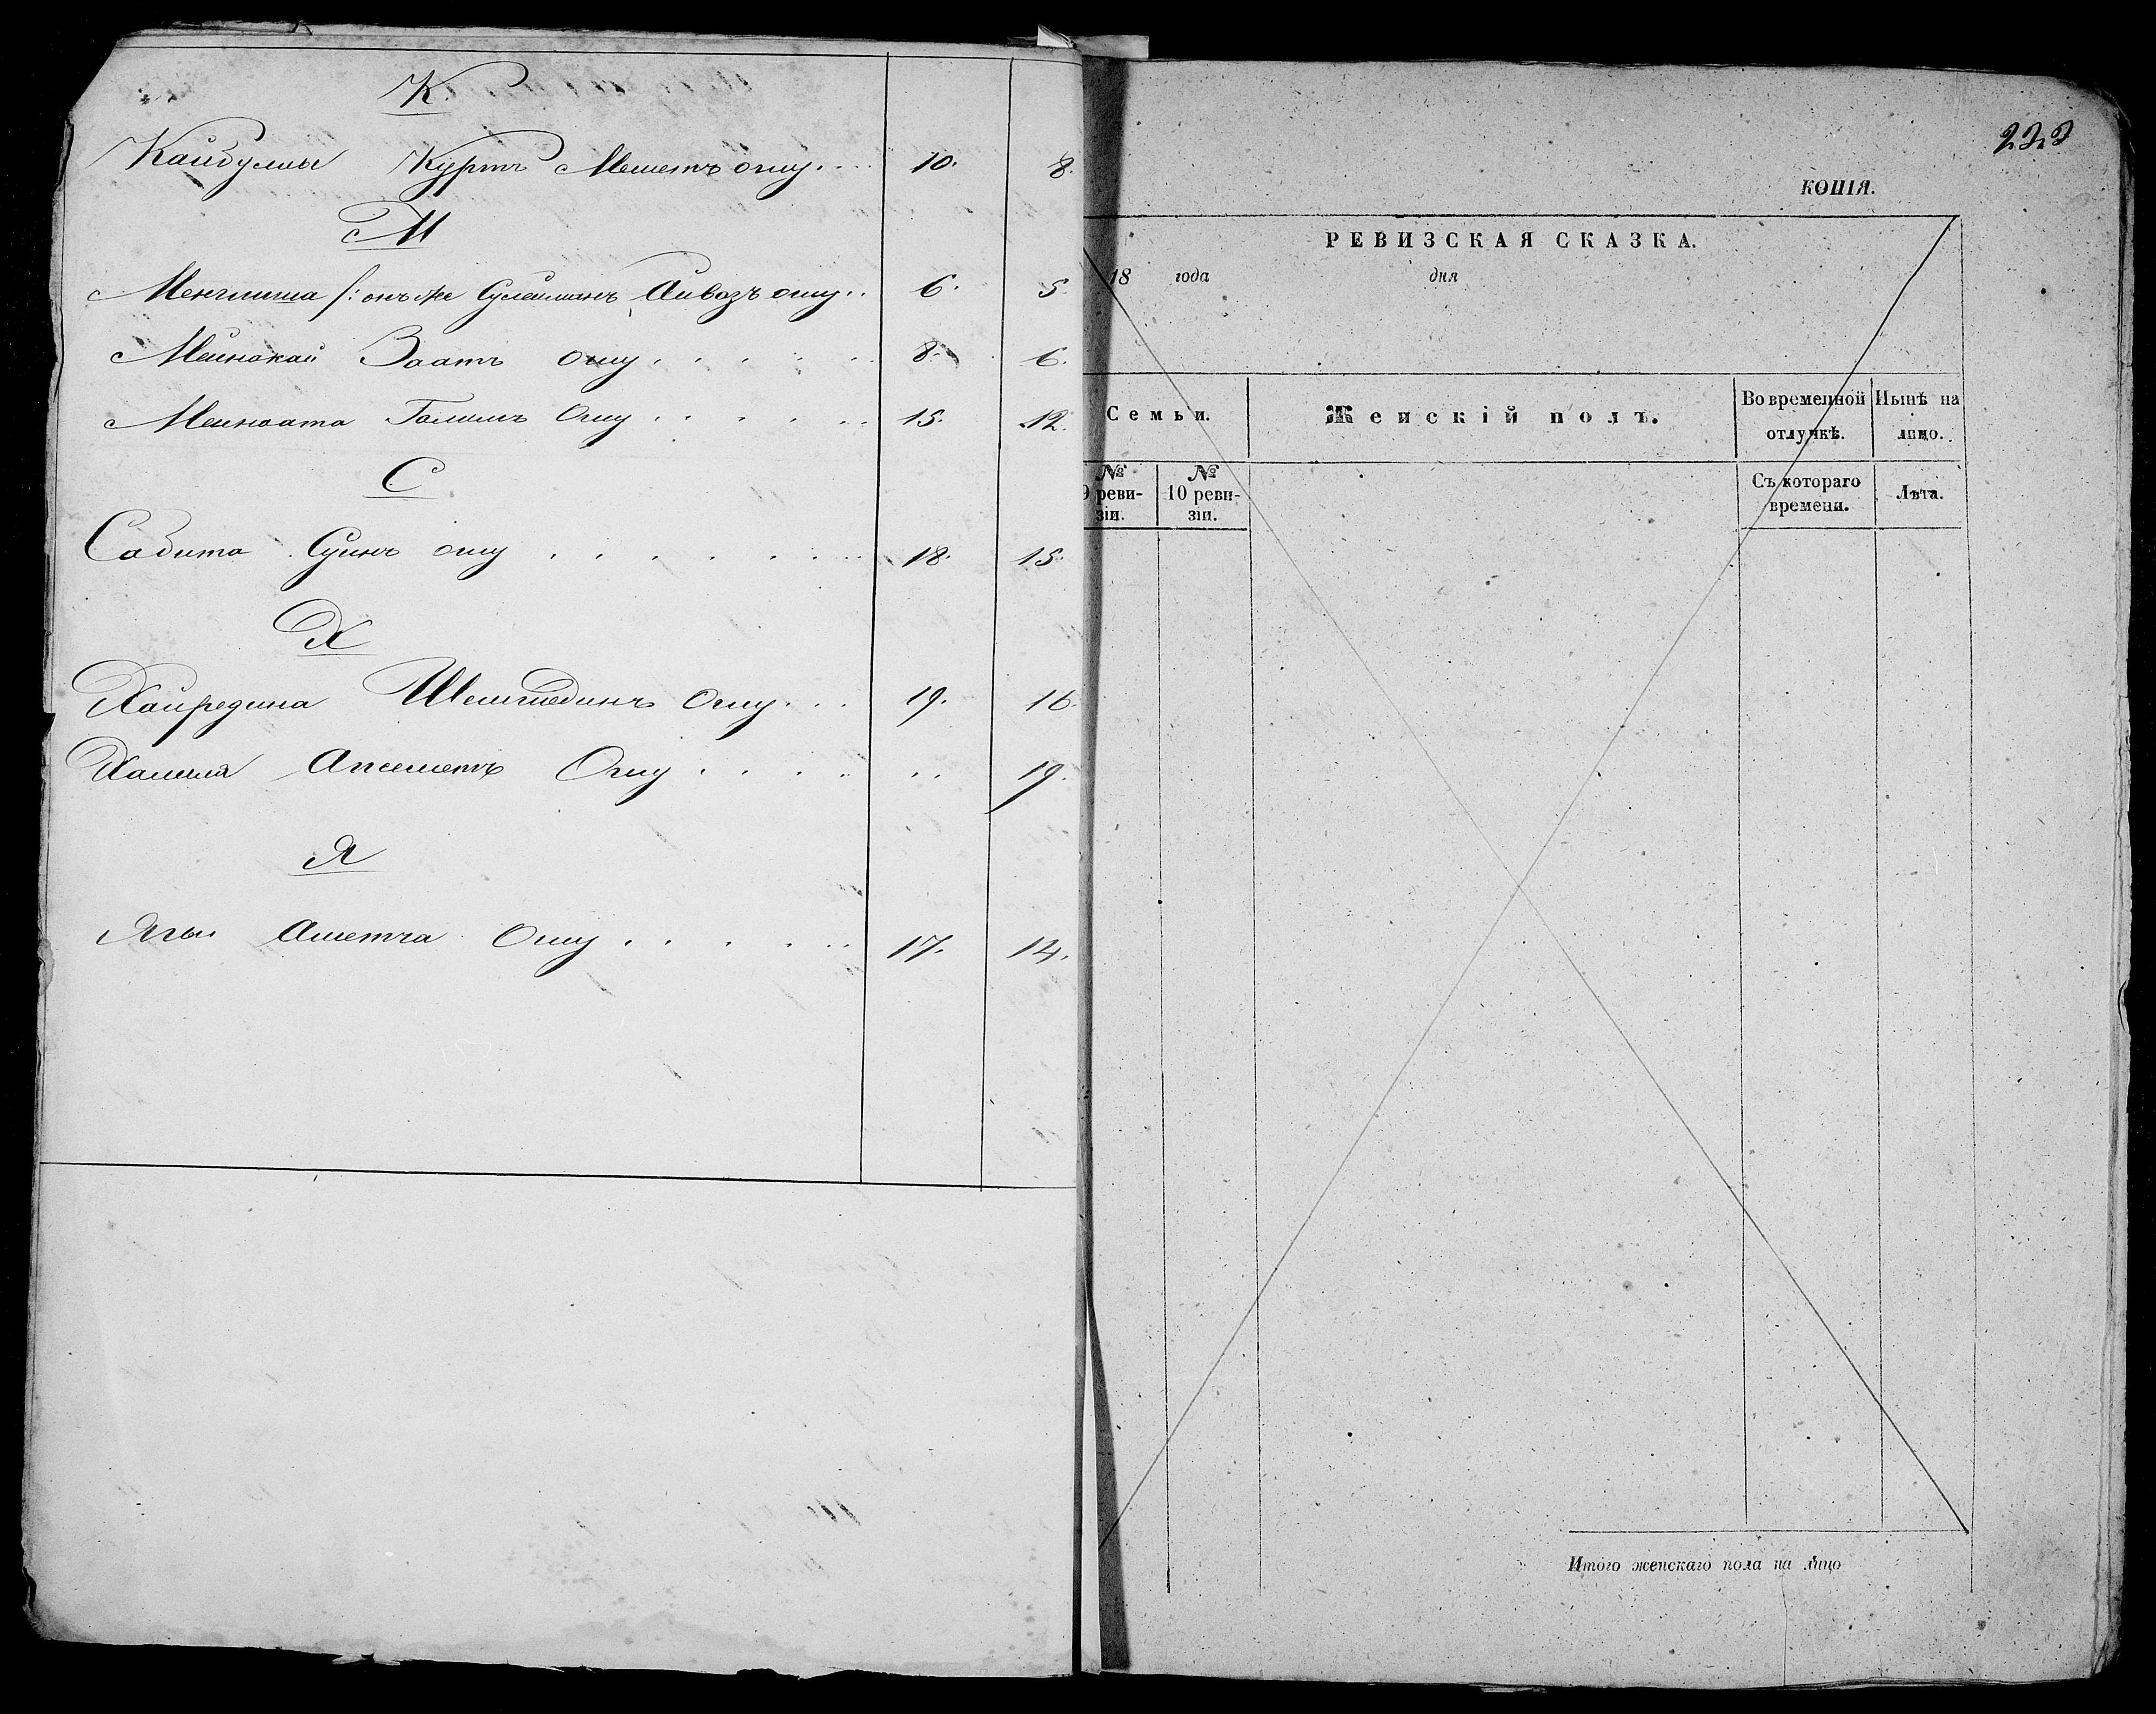 К.
Кайбулы Куртъ Меметъ оглу . . . 10. 8.
М
Менглиша /: онъ же Сулейманъ Айвазъ оглу . . 6. 5.
Меинакай Заатъ оглу . . . . . 8. 6.
Меинаата Галимъ Оглу . . . . . 15. 12.
С
Сабита Суинъ оглу . . . . . . 18. 15.
Х
Хайредина Шемшединъ Оглу . . . 19. 16.
Халиля Апсеметъ Оглу . . . . . . 19.
Я
Ягьи Аметча Оглу . . . . . 17. 14.
223
КОПІЯ.
РЕВИЗСКАЯ СКАЗКА.
18 года дня
Семьи. Женскій полъ. Во временной отлучкѣ. Нынѣ на лицо.
№ 9 ревизіи. № 10 ревизіи. Съ котораго времени. Лѣта.
Итого женскаго пола на лицо